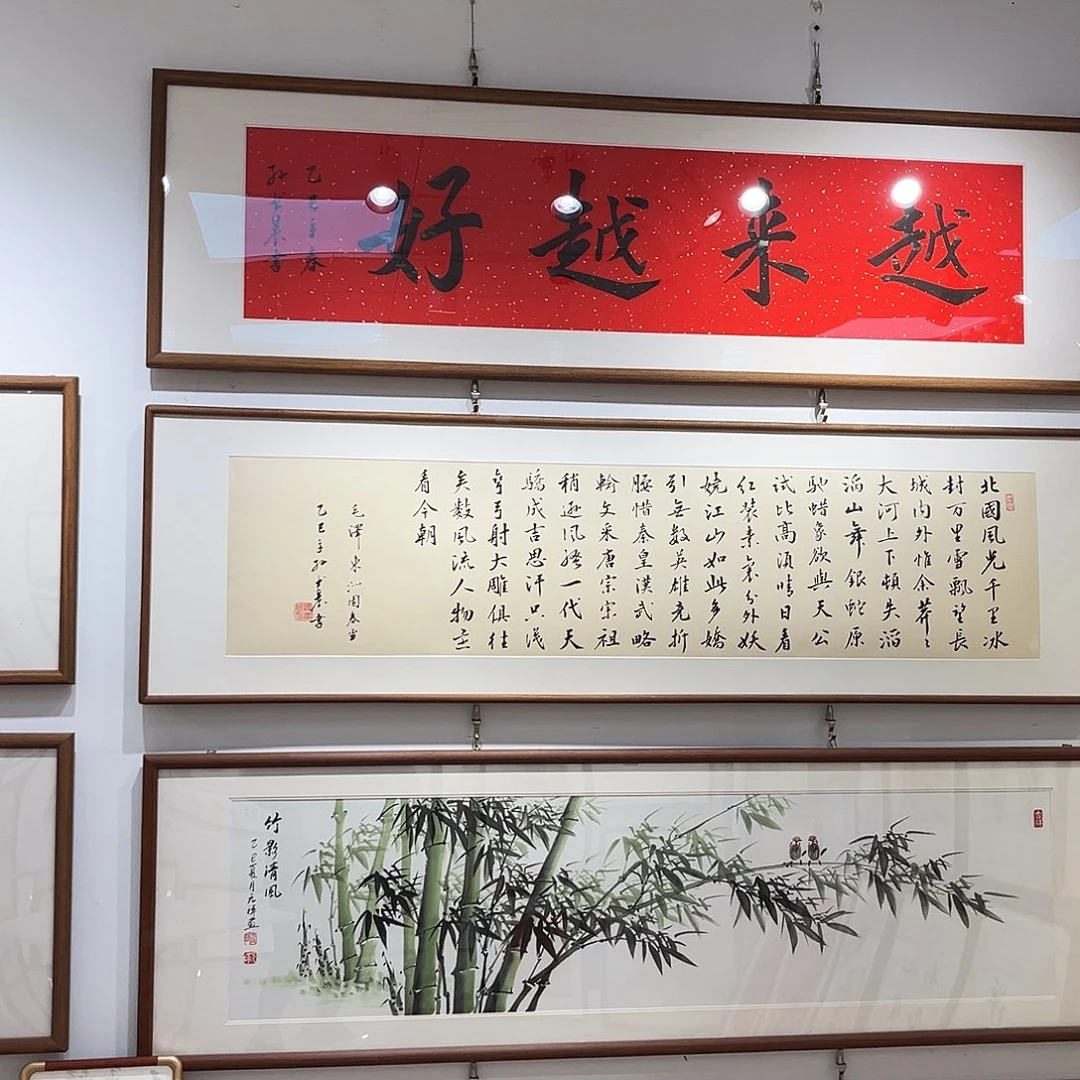 越来越好
乙巳年春
北國风光千里冰
封万里雪飘望長
城内外惟余莽々
大河上下頓失滔
滔山舞銀蛇原
驰蜡象欲與天公
试比高須晴日看
红装素裹分外妖
娆江山如此多嬌
引無数英雄竞折
腰惜秦皇漢武略
輸文采唐宗宋祖
稍逊风骚一代天
骄成吉思汗只识
弯弓射大雕俱往
矣数风流人物还
看今朝
毛澤東沁園春雪
乙巳年孙書
竹影清风
乙巳夏月